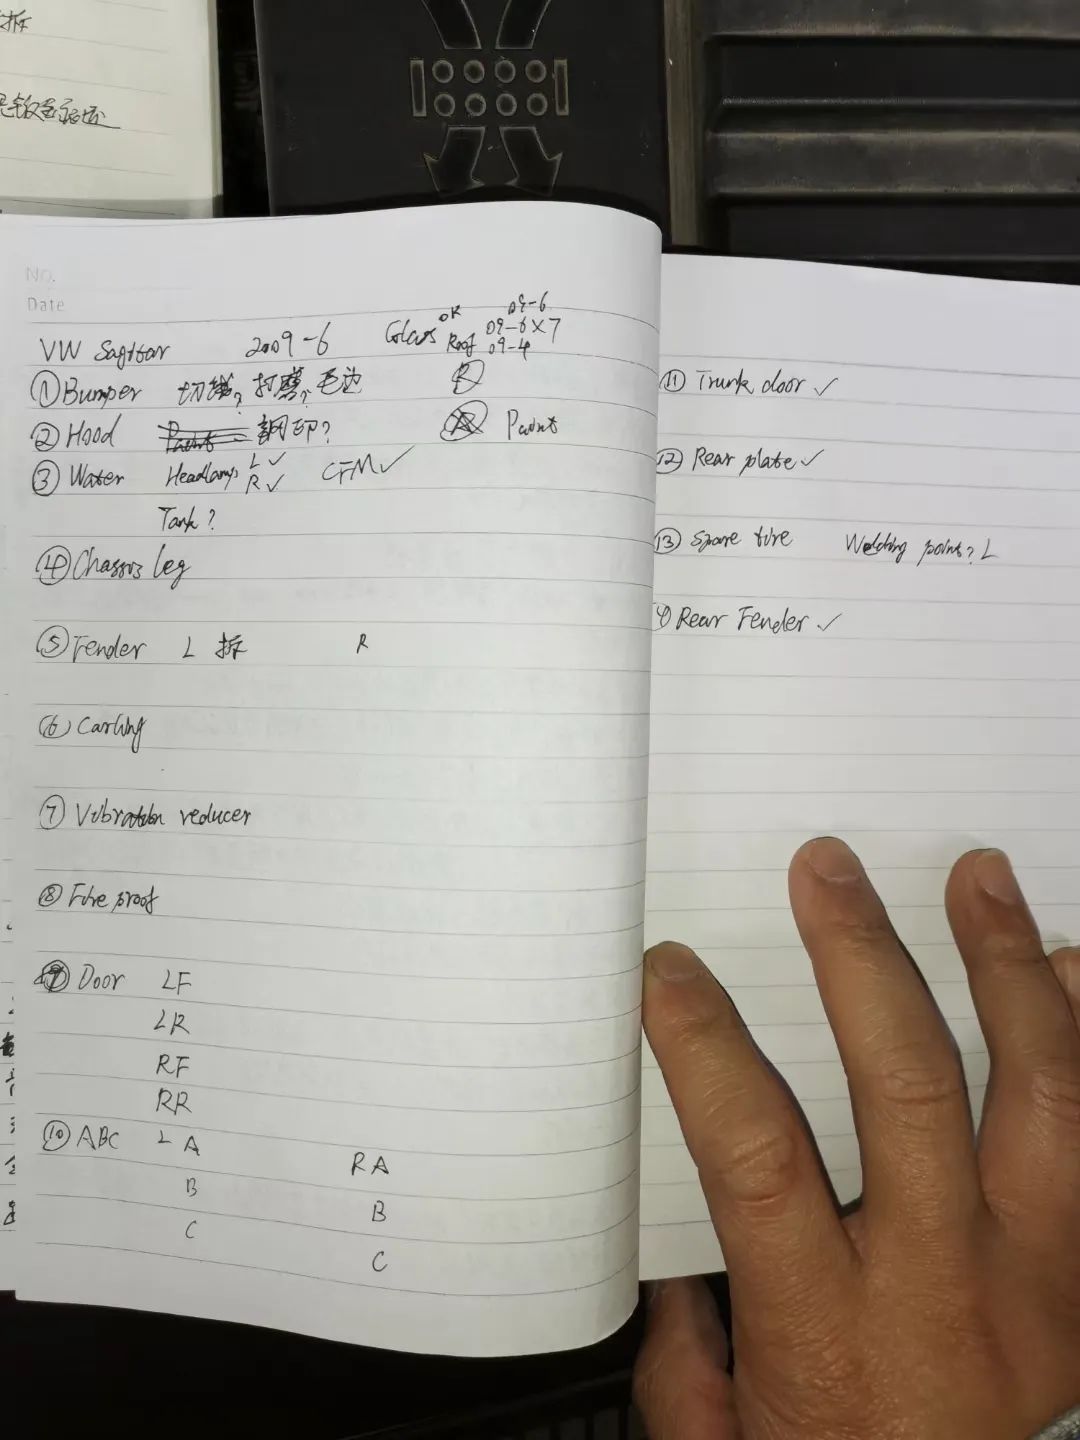 拆
No.
Date
VW Sagitar 2009-6 Glass OK 09-6
Roof 09-6×7
09-4
① Bumper 切线? 打磨? 毛边 R
② Hood 鋼印? Paint
③ Water Headlamps L ✓ R ✓ CFM ✓
Tank?
④ Chassis leg
⑤ Fender L 拆 R
⑥ Carling
⑦ Vibration reducer
⑧ Fire proof
⑨ Door LF
LR
RF
RR
⑩ ABC L A
RA
B
B
C
C
⑪ Trunk door ✓
⑫ Rear plate ✓
⑬ Spare tire Welding point? L
Rear Fender ✓